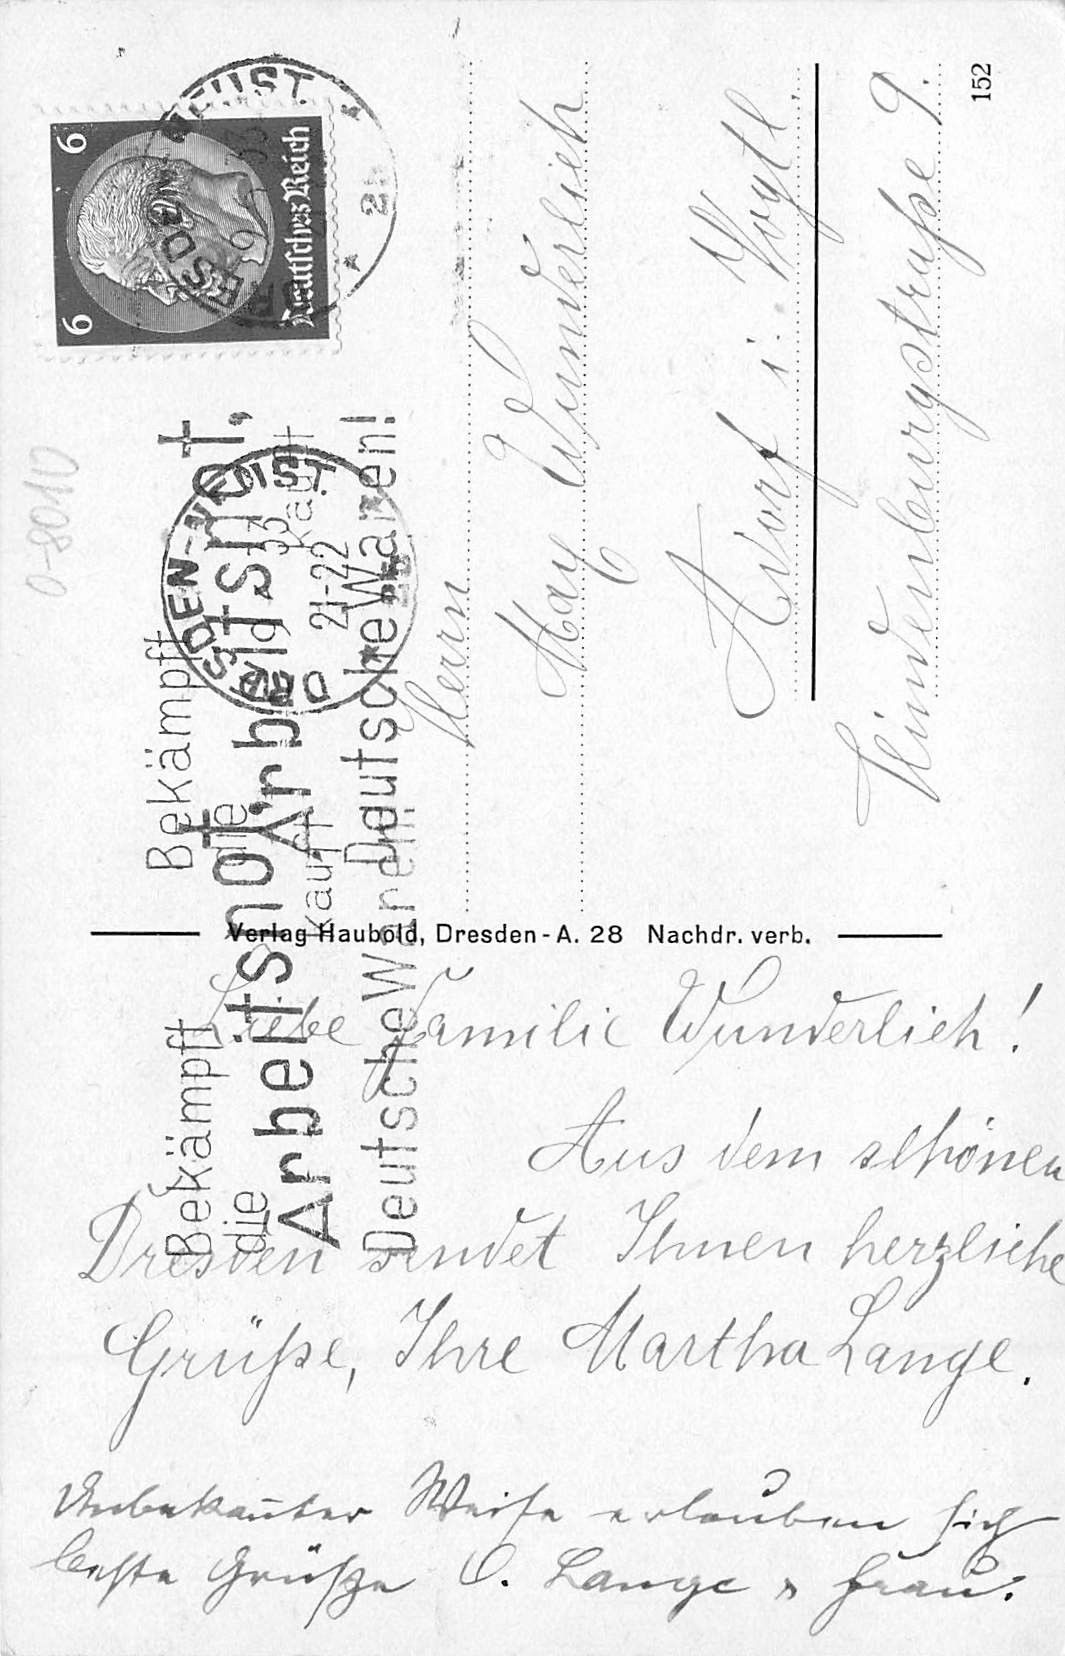 6 6
Deutsches Reich
DRESDEN-NEUST.
33
DRESDEN-NEUST.
33
21-22
Bekämpft
die
Arbeitsnot,
kauft
Deutsche Waren!
Bekämpft
die
Arbeitsnot,
kauft
Deutsche Waren
0-8010
152
Herrn
Max Wunderlich
Adorf i. Vogtl.
Hindenburgstraße 9.
Verlag Haubold, Dresden-A. 28 Nachdr. verb.
Liebe Familie Wunderlich!
Aus dem schönen
Dresden sendet Ihnen herzliche
Grüße, Ihre Martha Lange.
Unbekannter Weise erlauben sich
beste Grüße O. Lange u Frau.